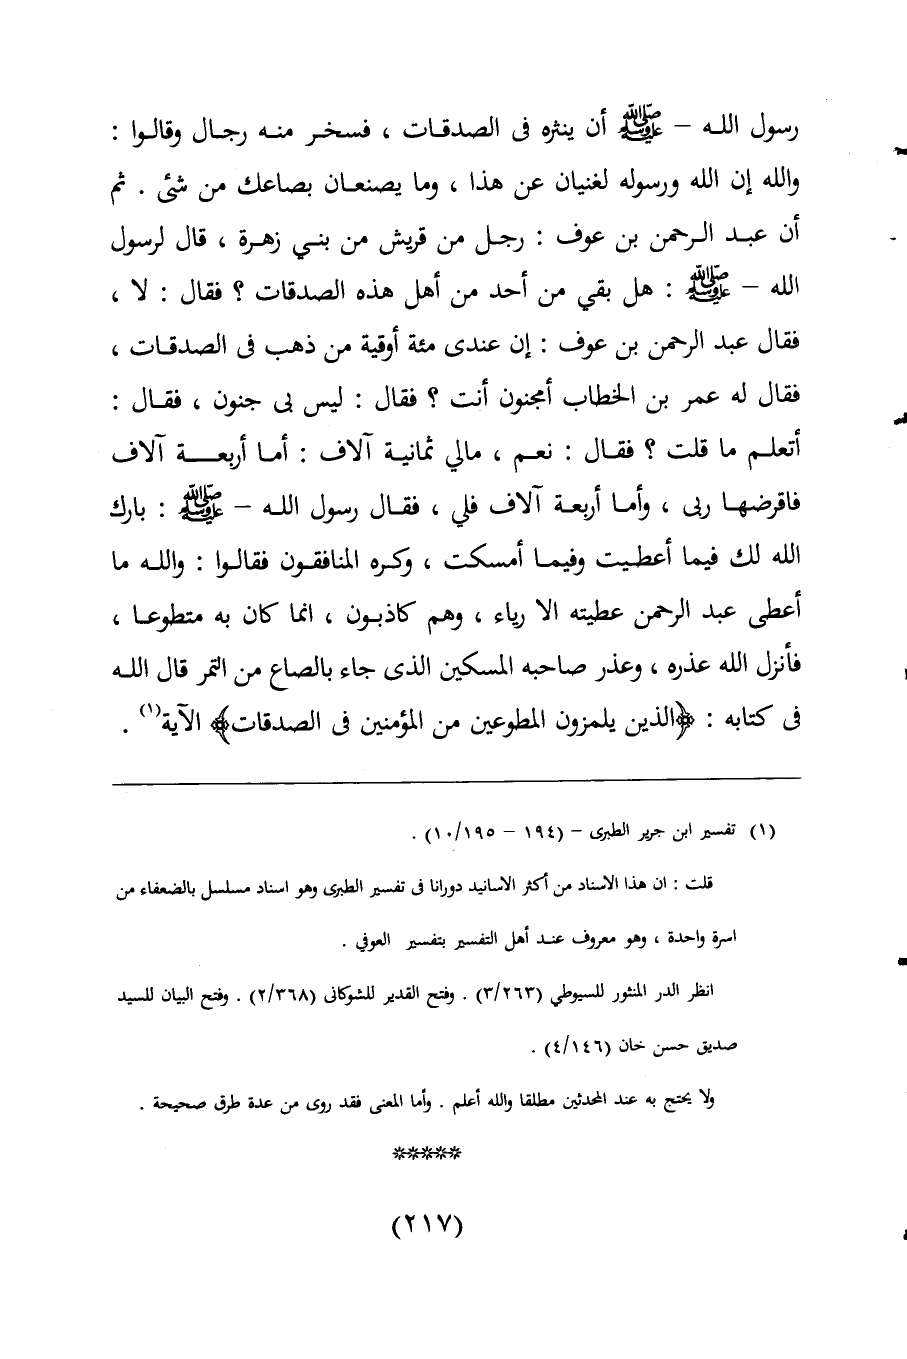 رسول اللـه – ﷺ أن ينثره فى الصدقـات ، فسخـر منـه رجـال وقالـوا :
والله إن الله ورسوله لغنيان عن هذا ، وما يصنعـان بصاعك من شئ . ثم
أن عبـد الـرحمن بن عوف : رجـل من قريش من بنـي زهـرة ، قال لرسول
الله – ﷺ : هل بقي من أحد من أهل هذه الصدقات ؟ فقال : لا ،
فقال عبد الرحمن بن عوف : إن عندى مئة أوقية من ذهب فى الصدقـات ،
فقال له عمر بن الخطاب أمجنون أنت ؟ فقال : ليس بى جنون ، فقـال :
أتعلـم ما قلت ؟ فقـال : نعـم ، مالي ثمانيـة آلاف : أمـا أربعـــة آلاف
فاقرضهـا ربى ، وأمـا أربعـة آلاف فلي ، فقـال رسول اللـه – ﷺ : بارك
الله لك فيما أعطـيت وفيمـا أمسكت ، وكـره المنافقـون فقالـوا : واللـه ما
أعطى عبد الرحمن عطيته الا رياء ، وهـم كاذبـون ، انما كان به متطوعـا ،
فأنزل الله عذره ، وعذر صاحبه المسكين الذى جاء بالصاع من التمر قال اللـه
فى كتابه : ﴿الذين يلمزون المطوعين من المؤمنين فى الصدقات﴾ الآية(١) .
(١) تفسير ابن جرير الطبرى – (١٩٤ – ١٠/١٩٥) .
قلت : ان هذا الاسناد من أكثر الاسانيد دورانا فى تفسير الطبرى وهو اسناد مسلسل بالضعفاء من
اسرة واحدة ، وهو معروف عنـد أهل التفسير بتفسير العوفي .
انظر الدر المنثور للسيوطي (٣/٢٦٣) . وفتح القدير للشوكانى (٢/٣٦٨) . وفتح البيان للسيد
صديق حسن خان (٤/١٤٦) .
ولا يحتج به عند المحدثين مطلقا والله أعلم . وأما المعنى فقد روى من عدة طرق صحيحة .
*****
(٢١٧)